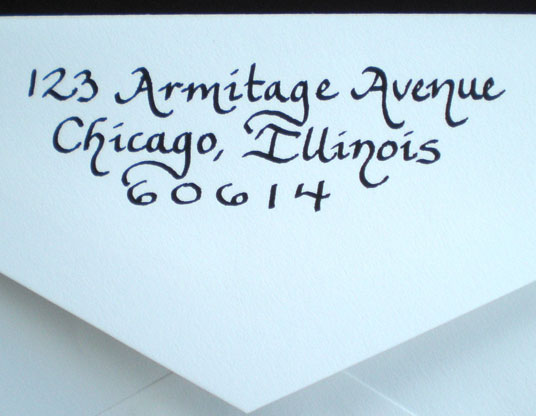 123 Armitage Avenue
Chicago, Illinois
60614